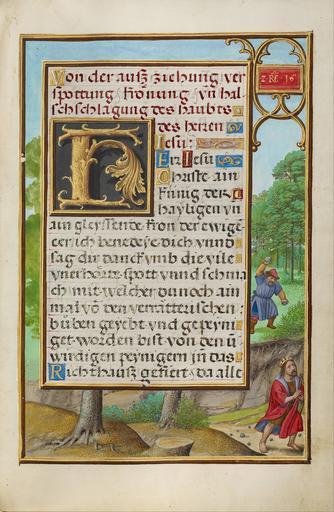 Von der ausz ziehung ver
spottung kronung vn̄ hal
schschlagung des haubts
des herren
Iesu:
HEr Iesu
Christe ain
kunig der
hayligen vn̄
ain gleyssende kron der ewige
eer ich benedeye dich vnnd
sag dir danck vmb die vile
vnerhorte spott vnnd schma
ch mit welcher du noch ain
mal vō den verratterischen
buben geyebt vnd gepeyni
get worden bist von den ū
wirdigen peynigern jn̄ das
Richthausz gefiert da alle
2. RE 16